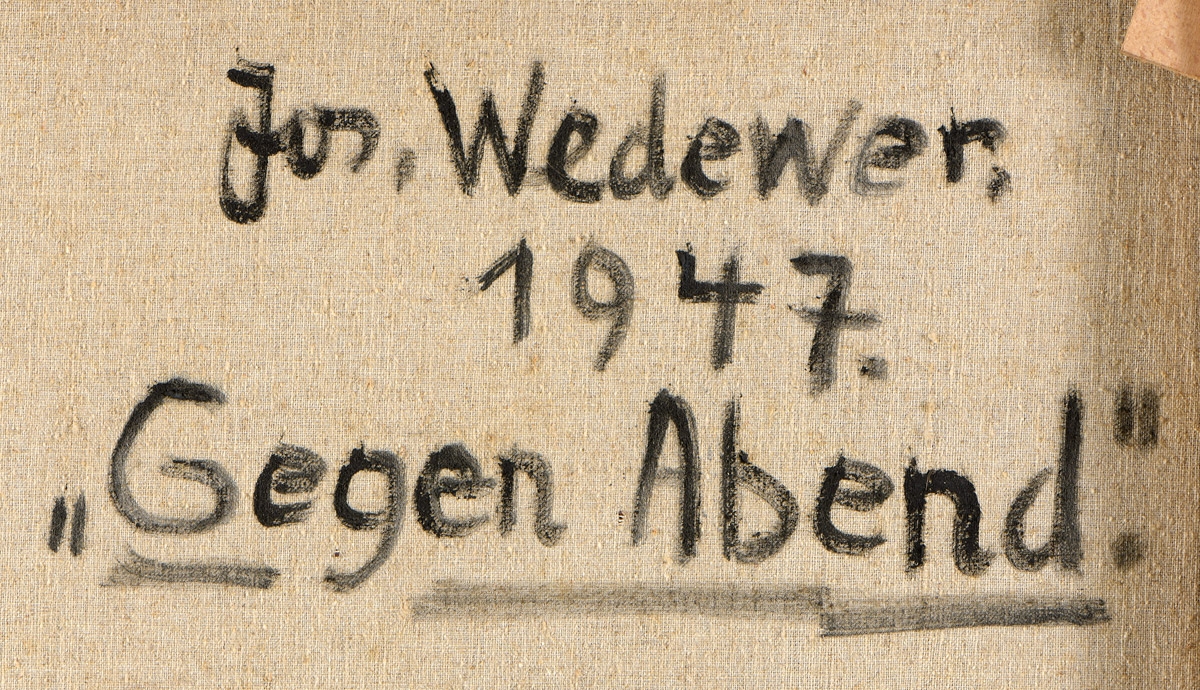 Jos, Wedewer,
1947.
„Gegen Abend".